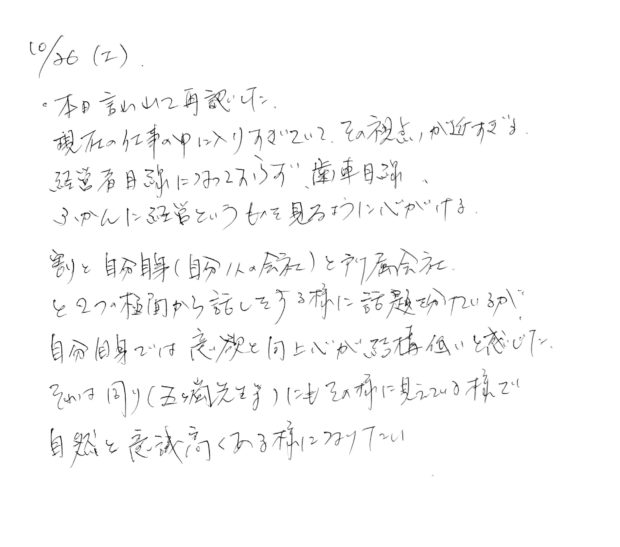 10/26 (土).
・本日言われて再認した.
現在の仕事の中に入りすぎていて、その視点が近すぎる.
経営者目線になっておらず、歯車目線、
ふかんに経営というものを見るように心がける.
割と自分自身(自分1人の会社)と所属会社
と2つの極面から話しをする様に話題を分けているが
自分自身では意欲と向上心が結構低いと感じた.
それは周り(五十嵐先生)にもその様に見えている様で
自然と意識高くある様になりたい